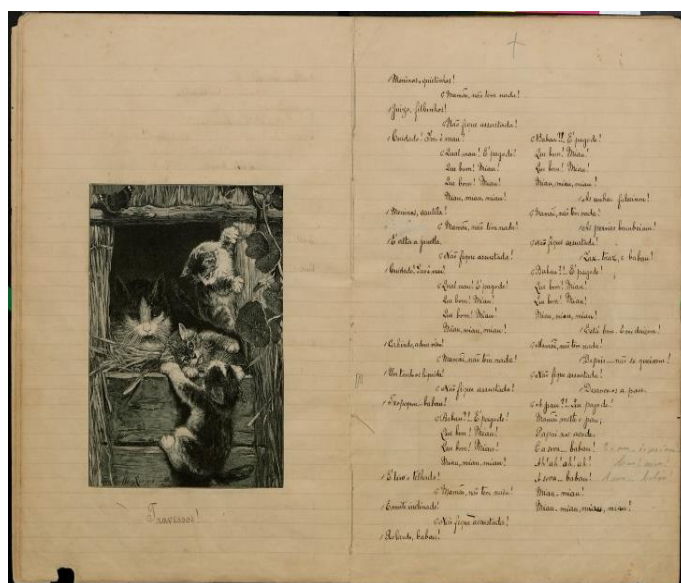 Travessos!
Meninos, quietinhos!
Mamãi, não tem nada!
Juizo, filhinhos!
Não fique assustada!
Cuidado! Isso é mau!
Qual mau! É pagode!
Que bom! Miau!
Que bom! Miau!
Miau, miau, miau!
Meninos, cautela!
Mamãi, não tem nada!
É alta a janella
Não fique assustada!
Cuidado!
Qual mau! É pagode!
Que bom! Miau!
Que bom! Miau!
Miau, miau, miau!
Mamãi, não tem nada!
Não fique assustada!
babau!
Babau?! É pagode!
Que bom! Miau!
Que bom! Miau!
Miau, miau, miau!
É liso o telhado!
Mamãi, não tem nada!
É muito inclinado!
Não fique assustada!
Rolando, babau!
Babau?! É pagode!
Que bom! Miau!
Que bom! Miau!
Miau, miau, miau!
As unhas
Mamãi, não tem nada!
As pernas
Não fique assustada!
e babau!
Babau?! É pagode!
Que bom! Miau!
Que bom! Miau!
Miau, miau, miau!
Está bom.
Mamãi, não tem nada!
Depois não se queixem!
Não fique assustada!
pagode!
Mamãi
Ah! ah! ah! ah!
babau!
Miau, miau!
Miau, miau, miau, miau!